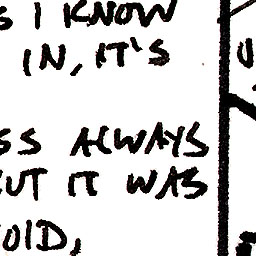 S I KNOW
IN, IT'S
SS ALWAYS
UT IT WAS
OID,